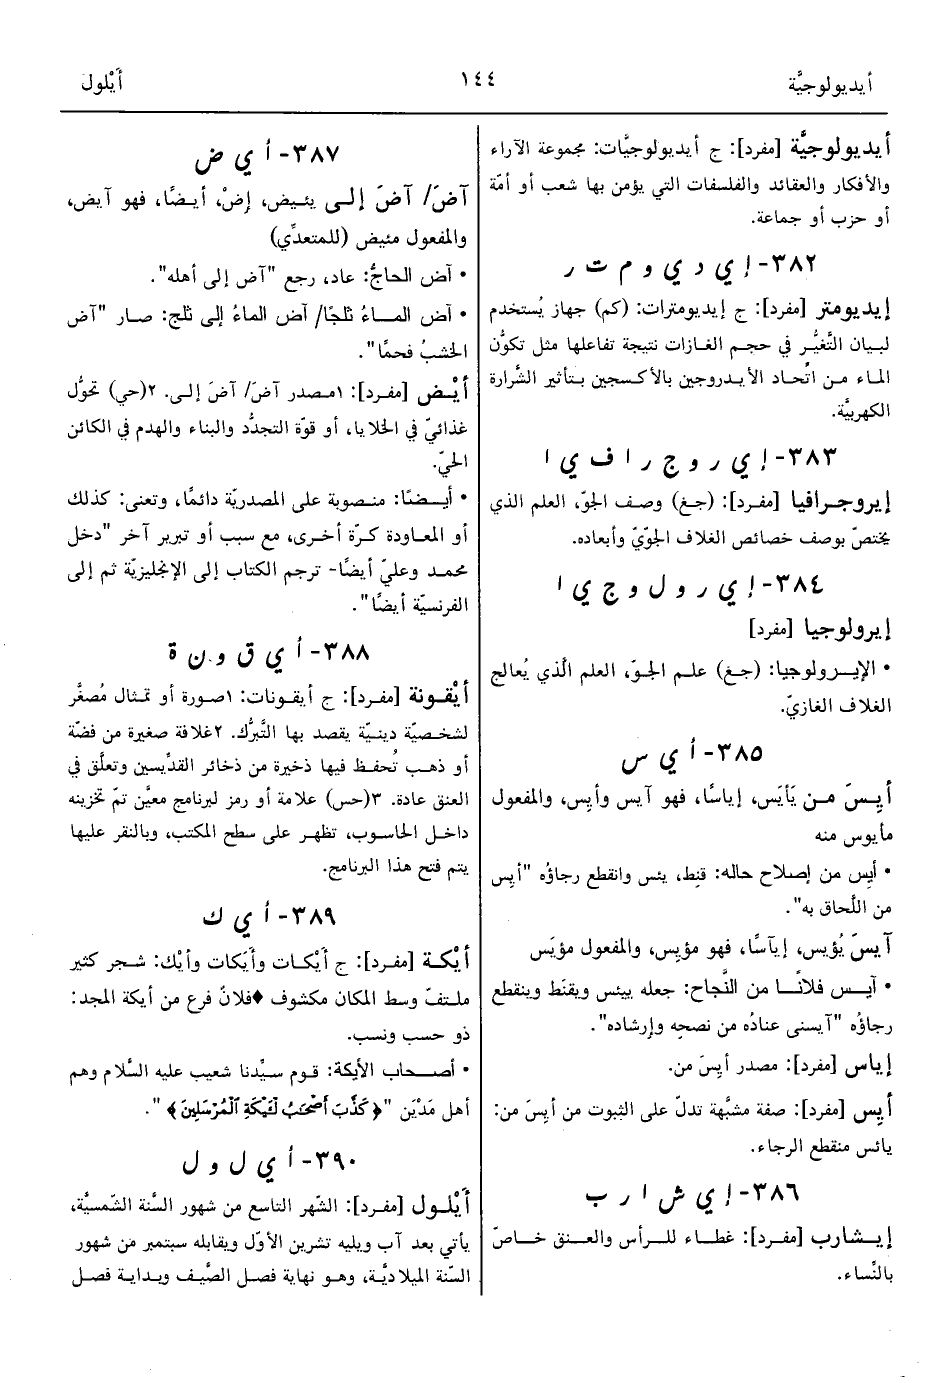 أيديولوجيَّة
١٤٤
أَيْلول
أيديولوجيَّة [مفرد]: ج أيديولوجيَّات: مجموعة الآراء
والأفكار والعقائد والفلسفات التي يؤمن بها شعب أو أمّة
أو حزب أو جماعة.
٣٨٢- إ ي د ي و م ت ر
إيديومتر [مفرد]: ج إيديومترات: (كم) جهاز يُستخدم
لبيان التَّغيُّر في حجم الغازات نتيجة تفاعلها مثل تكوُّن
الماء من اتِّحاد الأيدروجين بالأكسجين بتأثير الشَّرارة
الكهربيَّة.
٣٨٣- إ ي ر و ج ر ا ف ي ا
إيروجرافيا [مفرد]: (جغ) وصف الجوّ، العلم الذي
يختصّ بوصف خصائص الغلاف الجوّيّ وأبعاده.
٣٨٤- إ ي ر و ل و ج ي ا
إيرولوجيا [مفرد]
• الإيرولوجيا: (جغ) علم الجوّ، العلم الَّذي يُعالج
الغلاف الغازيّ.
٣٨٥- أ ي س
أيِسَ من يَأيَس، إياسًا، فهو آيس وأيِس، والمفعول
مأيوس منه
• أيِس من إصلاح حاله: قنِط، يئس وانقطع رجاؤه "أيِس
من اللَّحاق به".
آيسَ يُؤيس، إيآسًا، فهو مؤيِس، والمفعول مؤيَس
• آيس فلانًا من النَّجاح: جعله ييئس ويقنَط وينقطع
رجاؤُه "آيسنى عنادُه من نصحِه وإرشاده".
إياس [مفرد]: مصدر أيِسَ من.
أيِس [مفرد]: صفة مشبَّهة تدلّ على الثبوت من أيِسَ من:
يائس منقطع الرجاء.
٣٨٦- إ ي ش ا ر ب
إيشارب [مفرد]: غطاء للرأس والعنق خاصّ
بالنِّساء.
٣٨٧- أ ي ض
آضَ/ آضَ إلى يئيض، إضْ، أيضًا، فهو آيض،
والمفعول مئيض (للمتعدِّي)
• آض الحاجُّ: عاد، رجع "آض إلى أهله".
• آض الماءُ ثلجًا/ آض الماءُ إلى ثلج: صار "آض
الخشبُ فحمًا".
أيْض [مفرد]: ١مصدر آضَ/ آضَ إلى. ٢(حي) تحوُّل
غذائيّ في الخلايا، أو قوّة التجدُّد والبناء والهدم في الكائن
الحيّ.
• أيضًا: منصوبة على المصدريّة دائمًا، وتعنى: كذلك
أو المعاودة كرّة أخرى، مع سبب أو تبرير آخر "دخل
محمد وعليّ أيضًا- ترجم الكتاب إلى الإنجليزيّة ثم إلى
الفرنسيّة أيضًا".
٣٨٨- أ ي ق و ن ة
أيْقونة [مفرد]: ج أيقونات: ١صورة أو تمثال مُصغَّر
لشخصيّة دينيّة يقصد بها التَّبرُّك. ٢غلافة صغيرة من فضّة
أو ذهب تُحفظ فيها ذخيرة من ذخائر القدِّيسين وتعلَّق في
العنق عادة. ٣(حس) علامة أو رمز لبرنامج معيَّن تمّ تخزينه
داخل الحاسوب، تظهر على سطح المكتب، وبالنقر عليها
يتم فتح هذا البرنامج.
٣٨٩- أ ي ك
أيْكة [مفرد]: ج أيْكات وأيَكات وأيْك: شجر كثير
ملتفّ وسط المكان مكشوف ♦ فلانٌ فرع من أيكة المجد:
ذو حسب ونسب.
• أصحاب الأيكة: قوم سيِّدنا شعيب عليه السَّلام وهم
أهل مَدْيَن "﴿كَذَّبَ أَصْحَٰبُ لْـَٔيْكَةِ الْمُرْسَلِينَ﴾".
٣٩٠- أ ي ل و ل
أَيْلول [مفرد]: الشَّهر التاسع من شهور السَّنة الشَّمسيَّة،
يأتي بعد آب ويليه تشرين الأوّل ويقابله سبتمبر من شهور
السَّنة الميلاديَّة، وهو نهاية فصل الصَّيف وبداية فصل